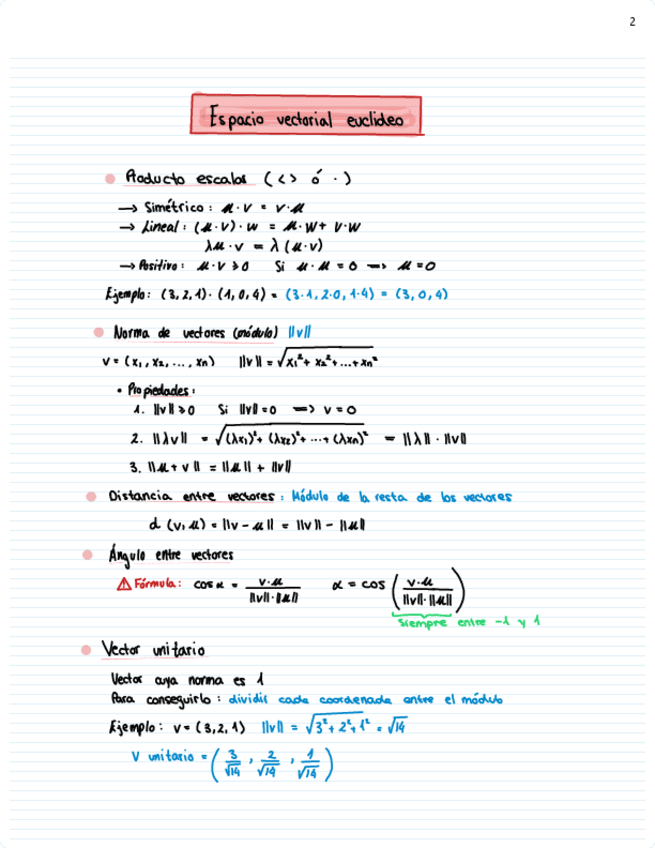 2
Espacio vectorial euclideo
Producto escalar ( <> ó · )
→ Simétrico : u · v = v · u
→ Lineal : (u · v) · w = u · w + v · w
λu · v = λ (u · v)
→ Positivo : u · v ≥ 0 Si u · u = 0 => u = 0
Ejemplo : (3, 2, 1) · (1, 0, 4) = (3·1, 2·0, 1·4) = (3, 0, 4)
Norma de vectores (módulo) ||v||
v = (x₁, x₂, ..., xn) ||v|| = √x₁² + x₂² + ... + xn²
• Propiedades :
1. ||v|| ≥ 0 Si ||v|| = 0 => v = 0
2. ||λv|| = √(λx₁)² + (λx₂)² + ... + (λxn)² = ||λ|| · ||v||
3. ||u + v|| = ||u|| + ||v||
Distancia entre vectores : Módulo de la resta de los vectores
d (v, u) = ||v - u|| = ||v|| - ||u||
Ángulo entre vectores
⚠ Fórmula : cos α = v·u / ||v||·||u|| α = cos ( v·u / ||v||·||u|| )
Siempre entre -1 y 1
Vector unitario
Vector cuya norma es 1
Para conseguirlo : dividir cada coordenada entre el módulo
Ejemplo : v = (3, 2, 1) ||v|| = √3² + 2² + 1² = √14
V unitario = ( 3/√14 , 2/√14 , 1/√14 )